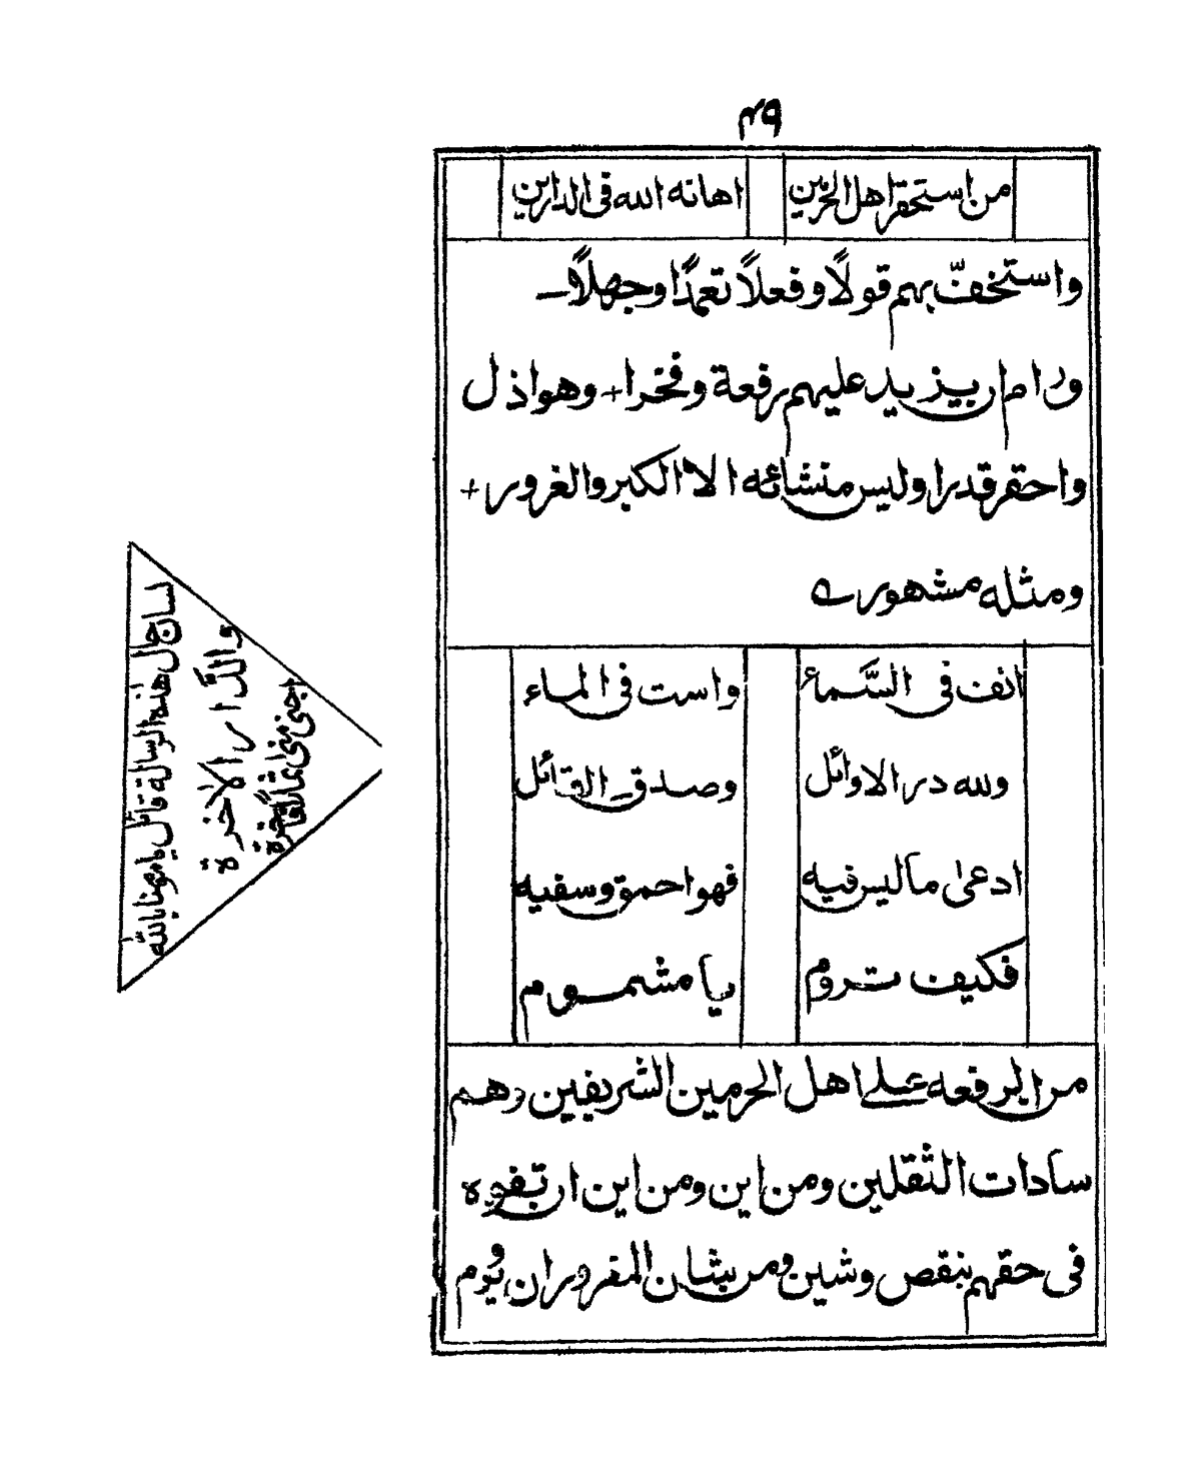 ٤٩
من استحقر اهل الحرمين اهانه الله فى الدارين
واستخفّ بهم قولًا وفعلًا تعمدًا وجهلًا
ورام ان يزيد عليهم رفعة وفخرا + وهو اذل
واحقر قدرا وليس منشائه الا الكبر والغرور +
ومثله مشهور ے
انف فى السَّماء واست فى الماء
ولله در الاوائل وصدق القائل
ادعى ما ليس فيه فهو احمق وسفيه
فكيف تروم يا مشموم
من الرفعه علے اهل الحرمين الشريفين وهم
سادات الثقلين ومن اين ومن اين ان تفوه
فى حقهم بنقص وشين ومن شان المغرور ان يروم
لسان حال هذه الرسالة قائل يا مومنا بالله
والدَّار الاخرة
اجنى منى ثمارًا فاخرة